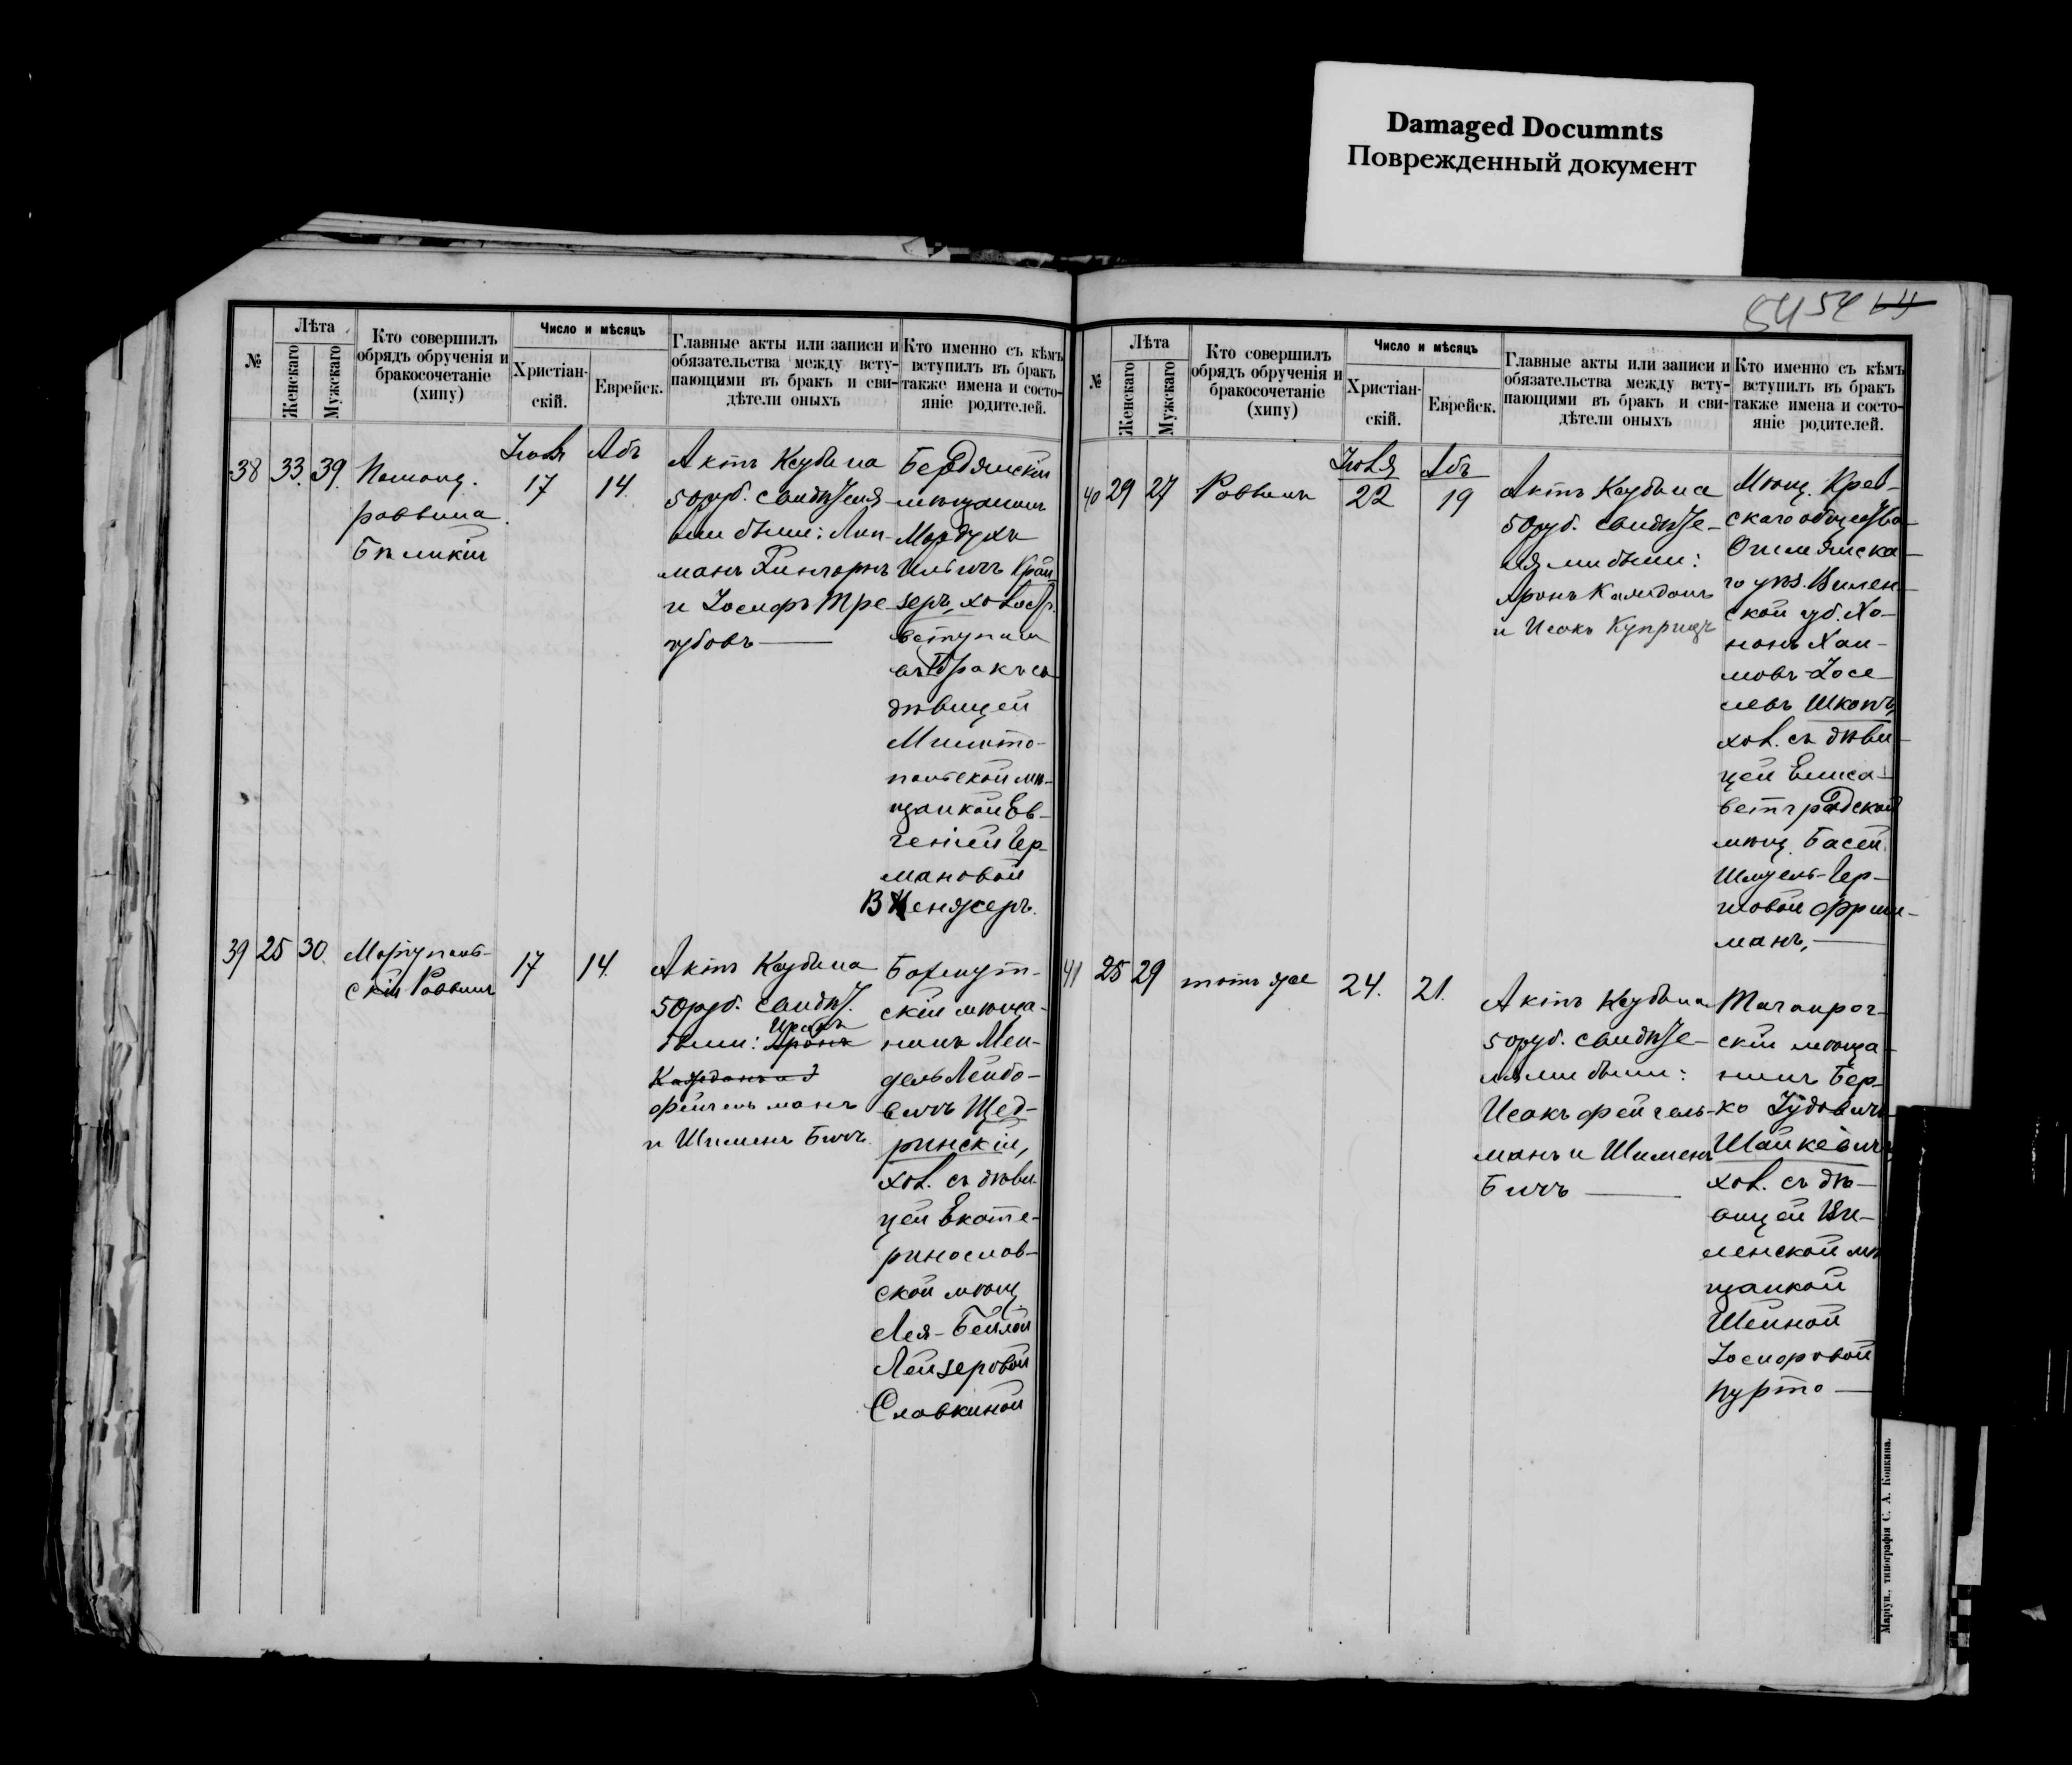 Damaged Documnts
Поврежденный документ
54 54
№
Лѣта
Женскаго
Мужскаго
Кто совершилъ
обрядъ обрученія и
бракосочетаніе
(хипу)
Число и мѣсяцъ
Христіан-
скій.
Еврейск.
Главные акты или записи и
обязательства между всту-
пающими въ бракъ и сви-
дѣтели оныхъ
Кто именно съ кѣмъ
вступилъ въ бракъ
также имена и состо-
яніе родителей.
38 33. 39.
Помощ.
раввина
Бѣликій
Іюля
17
Абъ
14.
Актъ Ксубыма
50 руб. свидѣтеля-
ми были: Лип-
манъ
и Іосифъ Тре-
губовъ
Бердянскій
мѣщанинъ
Мордухъ
Ильичъ Край
зеръ, холост.
вступилъ
въ бракъ съ
дѣвицей
Мелито-
польской мѣ-
щанкой Ев-
геніей Гер-
мановой
39 25 30.
Маріуполь-
скій Раввинъ
17
14.
Актъ Ксубыма
50 руб. свидѣт.
были: Аронъ
фейгельманъ
и Шименъ Бичъ
Бахмут-
скій мѣща-
нинъ Мен-
дель Лейбо-
вичъ Щед-
ринскій,
хол. съ дѣви-
цей Екате-
ринослав-
ской мѣщ.
Лея-Бейлой
Лейзеровой
Славкиной
№
Лѣта
Женскаго
Мужскаго
Кто совершилъ
обрядъ обрученія и
бракосочетаніе
(хипу)
Число и мѣсяцъ
Христіан-
скій.
Еврейск.
Главные акты или записи и
обязательства между всту-
пающими въ бракъ и сви-
дѣтели оныхъ
Кто именно съ кѣмъ
вступилъ въ бракъ
также имена и состо-
яніе родителей.
40 29 27
Раввинъ
Іюля
22
Абъ
19
Актъ Ксубыма
50 руб. свидѣте-
лями были:
Аронъ
и Исакъ Куприцъ
Мѣщ. Крев-
скаго общества
Ошмянска-
го уѣз. Вилен-
ской губ. Хо-
нонъ Хаи-
мовъ-Іосе-
левъ Шкопъ,
хол. съ дѣви-
цей Елиса-
ветградской
мѣщ. Басей
Шмуель-Гер-
шовой Фриш-
манъ,
41 25 29
тотъ же
24.
21.
Актъ Ксубыма
50 руб. свидѣте-
лями были:
Исакъ Фейгель-
манъ и Шименъ
Бичъ
Таганрог-
скій мѣща-
нинъ Бер-
ко Іудовичъ
Шайкевичъ
хол. съ дѣ-
вицей Ви-
ленской мѣ
щанкой
Шейной
Іосифовой
Пурто
Маріуп., типографія С. А. Копкина.